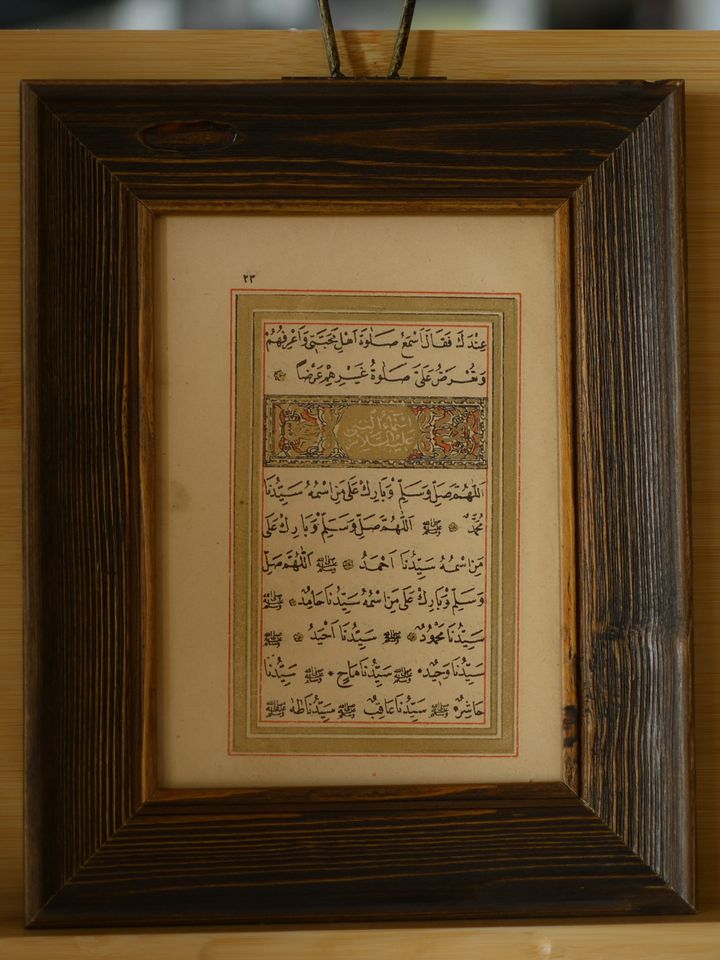 ٢٣
عِنْدَكَ فَقَالَ اَسْمَعُ صَلٰوةَ اَهْلِ مَحَبَّتٖى وَاَعْرِفُهُمْ
وَتُعْرَضُ عَلَىَّ صَلٰوةُ غَيْرِهِمْ عَرْضًا
اَسْمَاءُ النَّبِىِّ
عَلَيْهِ السَّلَامُ
اَللّٰهُمَّ صَلِّ وَسَلِّمْ وَبَارِكْ عَلٰى مَنِ اسْمُهُ سَيِّدُنَا
مُحَمَّدٌ ﷺ اَللّٰهُمَّ صَلِّ وَسَلِّمْ وَبَارِكْ عَلٰى
مَنِ اسْمُهُ سَيِّدُنَا اَحْمَدُ ﷺ اَللّٰهُمَّ صَلِّ
وَسَلِّمْ وَبَارِكْ عَلٰى مَنِ اسْمُهُ سَيِّدُنَا حَامِدٌ ﷺ
سَيِّدُنَا مَحْمُودٌ ﷺ سَيِّدُنَا اَحْيَدُ ﷺ
سَيِّدُنَا وَحٖيدٌ ﷺ سَيِّدُنَا مَاحٍ ﷺ سَيِّدُنَا
حَاشِرٌ ﷺ سَيِّدُنَا عَاقِبٌ ﷺ سَيِّدُنَا طٰهٰ ﷺ